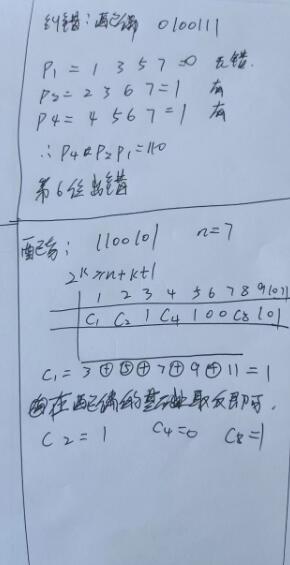 纠错：配偶 0100111
P₁ = 1 3 5 7 =0 无错.
P₂ = 2 3 6 7 =1 有
P4 = 4 5 6 7 =1 有
∴ P4 P₂ P₁ =110
第6位出错
配偶： 1100101 n=7
2ᵏ ≥ n+k+1
1 2 3 4 5 6 7 8 9 10 11
C₁ C₂ 1 C4 1 0 0 C8 1 0 1
C₁ = 3 ⊕ 5 ⊕ 7 ⊕ 9 ⊕ 11 = 1
在配偶的基础上取反即可.
C2 = 1 C4=0 C8=1